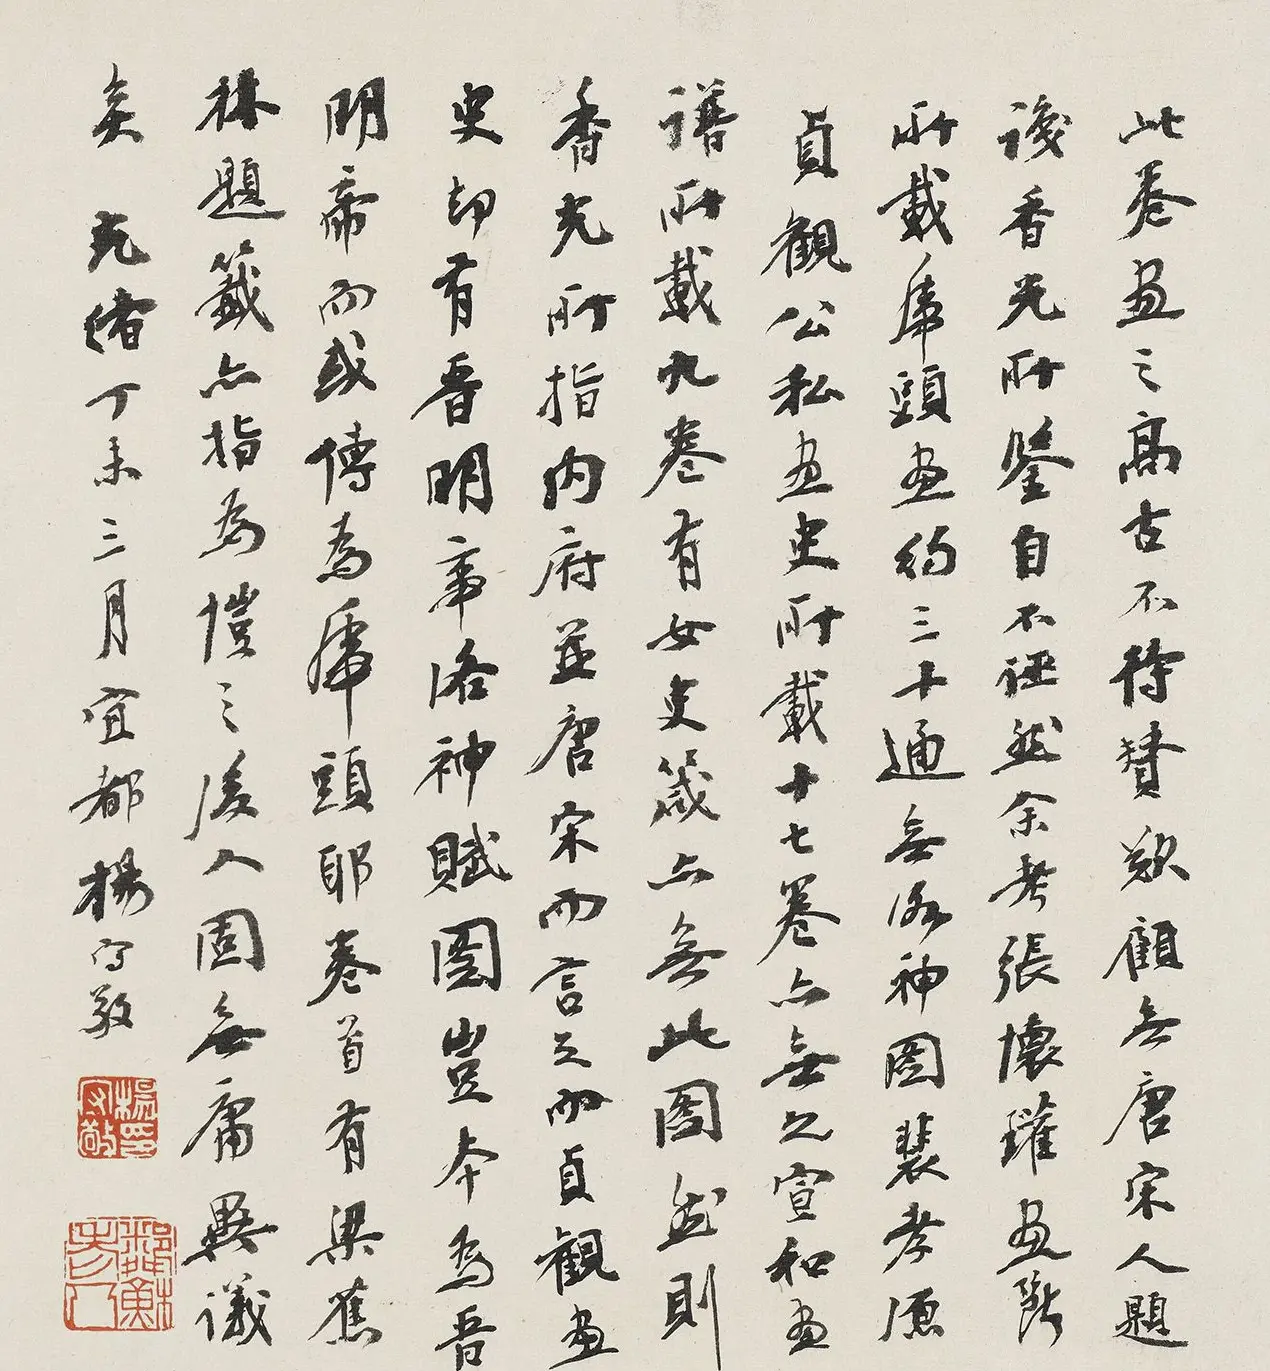 此卷畫之高古不待贊歎顧無唐宋人題
識香光所鑒自不誣然余考張懷瓘畫斷
所載虎頭畫約三十通無洛神圖裴孝源
貞觀公私畫史所載十七卷亦無之宣和畫
譜所載九卷有女史箴亦無此圖然則
香光所指内府並唐宋而言之而貞觀畫
史却有晉明帝洛神賦圖豈本為晉
明帝而或傳為虎頭耶卷首有梁蕉
林題籤亦指為愷之後人固無庸異議
矣 光緒丁未三月宜都楊守敬
楊守敬印
鄰蘇老人